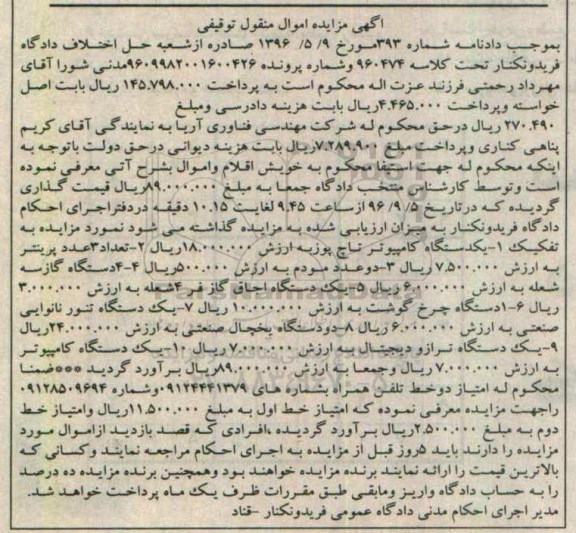 آگهی مزایده اموال منقول توقیفی
بموجب دادنامه شماره ۳۹۳مورخ ۹/ ۵/ ۱۳۹۶ صادره ازشعبه حل اختلاف دادگاه
فریدونکنار تحت کلاسه ۹۶۰۴۷۴ وشماره پرونده ۹۶۰۹۹۸۲۰۰۱۶۰۰۴۲۶مدنی شورا آقای
مهرداد رحمتی فرزند عزت اله محکوم است به پرداخت ۱۴۵.۷۹۸.۰۰۰ ریال بابت اصل
خواسته وپرداخت ۴.۴۶۵.۰۰۰ریال بابت هزینه دادرسی ومبلغ
۲۷۰.۴۹۰ ریال درحق محکوم له شرکت مهندسی فناوری آریا به نمایندگی آقای کریم
پناهی کناری وپرداخت مبلغ ۷.۲۸۹.۹۰۰ریال بابت هزینه دیوانی درحق دولت باتوجه به
اینکه محکوم له جهت استیفا محکوم به خویش اقلام واموال بشرح آتی معرفی نموده
است وتوسط کارشناس منتخب دادگاه جمعا به مبلغ ۸۹.۰۰۰.۰۰۰ریال قیمت گذاری
گردیده که درتاریخ ۹۶/۹/۵ ازساعت ۹.۴۵ لغایت ۱۰.۱۵ دقیقه دردفتراجرای احکام
دادگاه فریدونکنار به میزان ارزیابی شده به مزایده گذاشته می شود نمورد مزایده به
تفکیک ۱-یکدستگاه کامپیوتر تاج پوزبه ارزش ۱۸.۰۰۰.۰۰۰ریال ۲-تعداد۳عدد پرینتر
به ارزش ۷.۵۰۰.۰۰۰ ریال ۳-دوعدد مودم به ارزش ۵۰۰.۰۰۰ریال ۴-۴دستگاه گازسه
شعله به ارزش ۶.۰۰۰.۰۰۰ ریال ۵-یک دستگاه اجاق گاز فر ۴شعله به ارزش ۳.۰۰۰.۰۰۰
ریال ۶-۱دستگاه چرخ گوشت به ارزش ۱۰.۰۰۰.۰۰۰ ریال ۷-یک دستگاه تنور نانوایی
صنعتی به ارزش ۶.۰۰۰.۰۰۰ ریال ۸-دودستگاه یخچال صنعتی به ارزش ۲۴.۰۰۰.۰۰۰ریال
۹-یک دستگاه ترازو دیجیتال به ارزش ۷.۰۰۰.۰۰۰ ریال ۱۰-یک دستگاه کامپیوتر
به ارزش ۷.۰۰۰.۰۰۰ ریال وجمعا به ارزش ۸۹.۰۰۰.۰۰۰ریال برآورد گردید ***ضمنا
محکوم له امتیاز دوخط تلفن همراه بشماره های ۰۹۱۲۴۴۴۱۳۷۹وشماره ۰۹۱۲۸۵۰۹۶۹۴
راجهت مزایده معرفی نموده که امتیاز خط اول به مبلغ ۱۱.۵۰۰.۰۰۰ریال وامتیاز خط
دوم به مبلغ ۲.۵۰۰.۰۰۰ریال برآورد گردیده ،افرادی که قصد بازدید ازاموال مورد
مزایده را دارند باید ۵روز قبل از مزایده به اجرای احکام مراجعه نمایند وکسانی که
بالاترین قیمت را ارائه نمایند برنده مزایده خواهند بود وهمچنین برنده مزایده ده درصد
را به حساب دادگاه واریز ومابقی طبق مقررات ظرف یک ماه پرداخت خواهد شد.
مدیر اجرای احکام مدنی دادگاه عمومی فریدونکنار -قناد